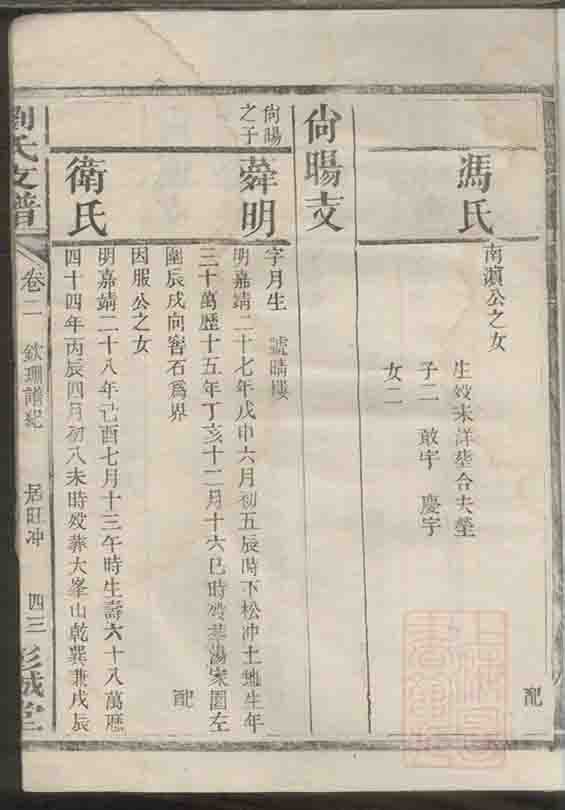 配
馮氏
南濵公之女
生歿未詳塟合夫塋
子二 敢宇 慶宇
女二
尙暘支
尙暘之子
舜明
字月生 號晴樓
明嘉靖二十七年戊申六月初五辰時下松冲土地生年
三十萬歴十五年丁亥十二月十六巳時歿葬湯家園左
園辰戌向窖石爲界
配
衛氏
因服公之女
明嘉靖二十八年己酉七月十三午時生壽六十八萬歴
四十四年丙辰四月初八未時歿葬大峯山乾巽兼戌辰
劉氏支譜
卷二 欽珊譜紀 居旺冲 四三 彭城堂